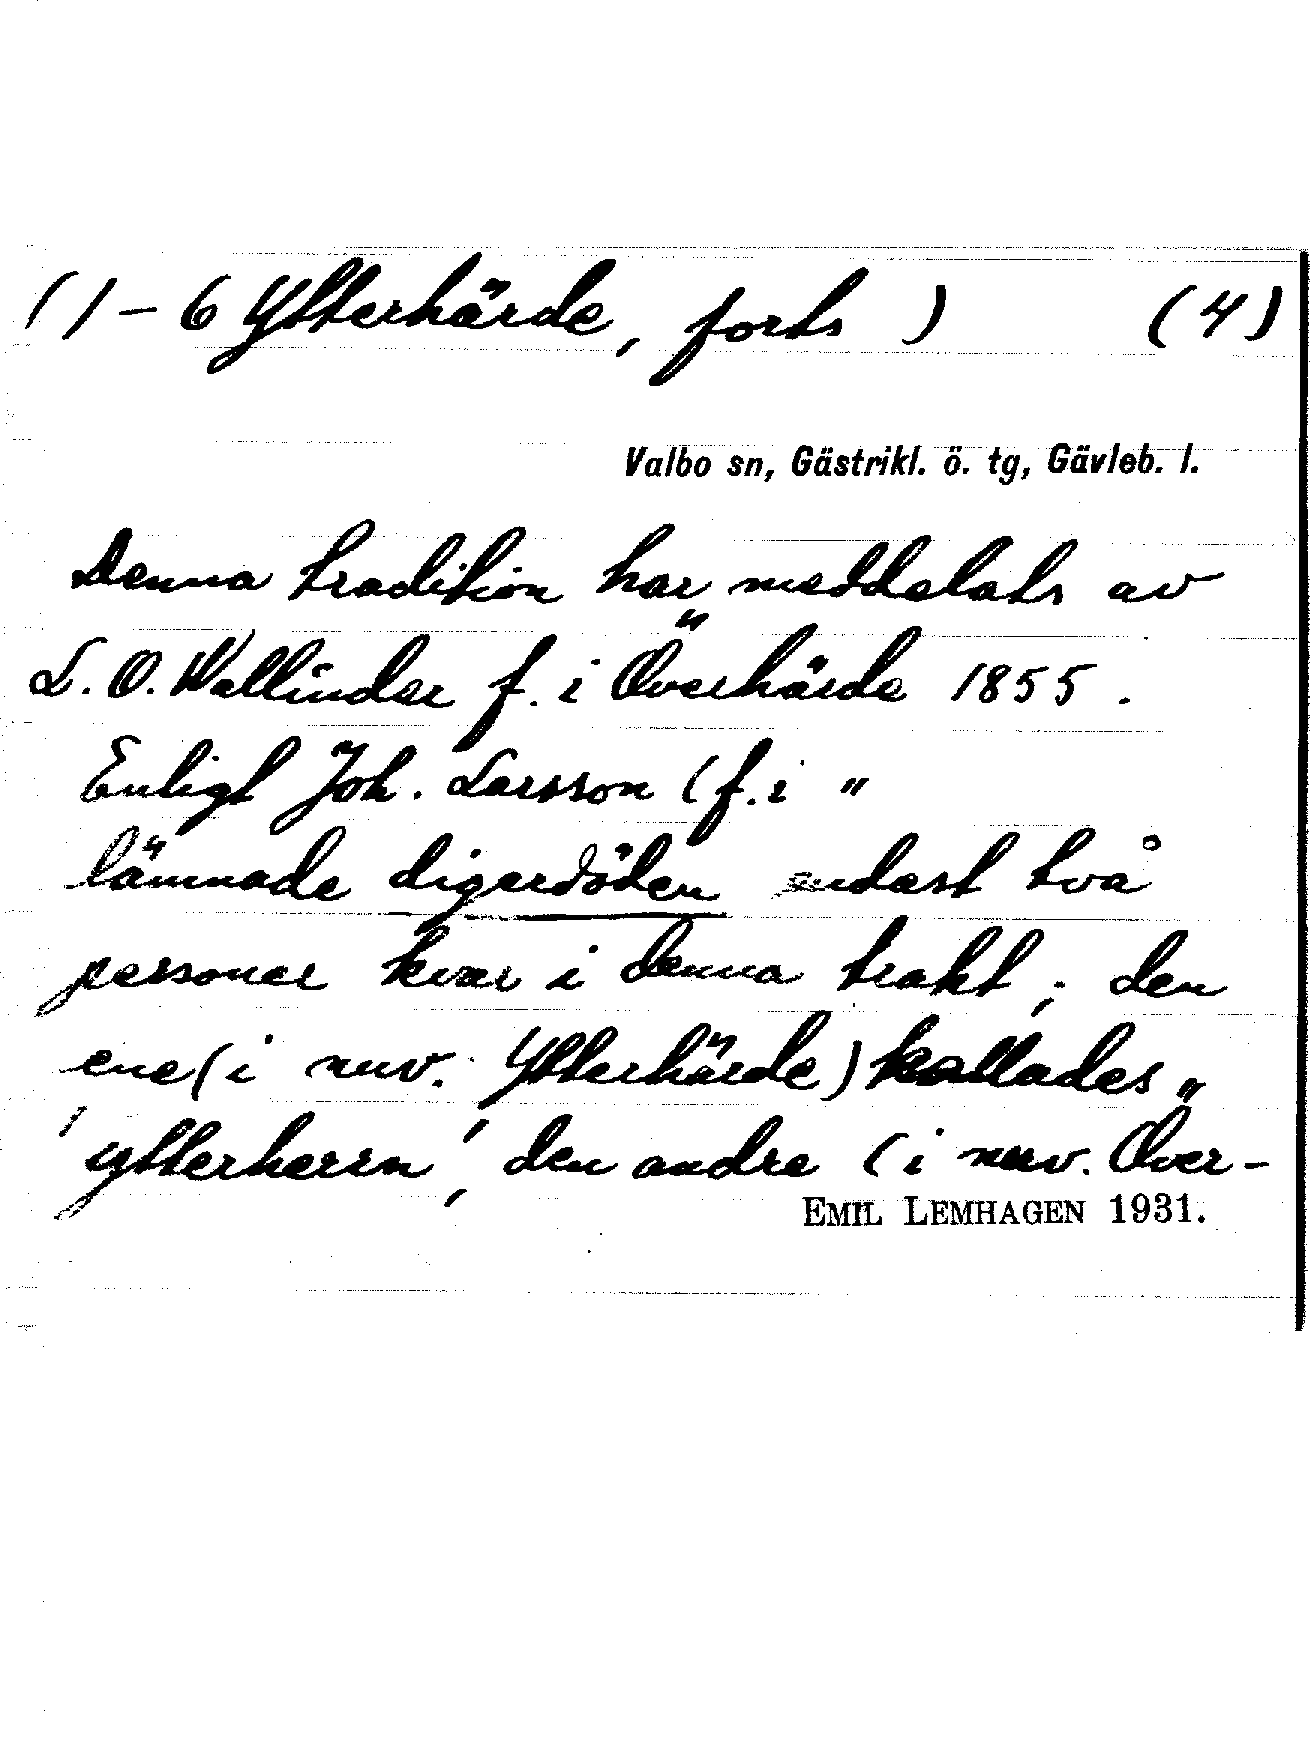 (1-6 Ytterhärde, forts) (4)
Valbo sn, Gästrikl. ö. tg, Gävleb. l.
Denna tradition har meddelats av
L. O. Wallinder f. i Överhärde 1855.
Enligt Joh. Larsson (f. i "
lämnade digerdöden endast två
personer kvar i denna trakt; den
ene (i nuv. Ytterhärde) kallades
'ytterherrn', den andre (i nuv. Över-
EMIL LEMHAGEN 1931.